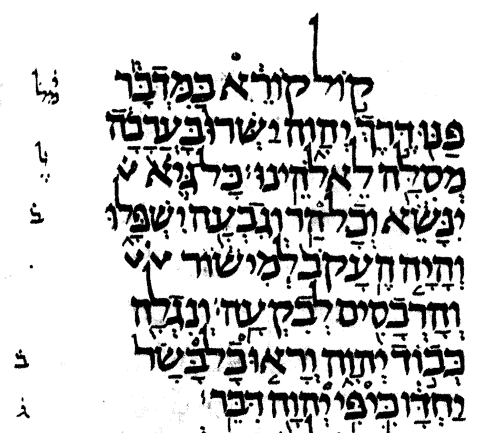 קוֹל קוֹרֵא בַּמִּדְבָּר
פַּנּוּ דֶּרֶךְ יְהוָה יַשְּׁרוּ בָּעֲרָבָה
מְסִלָּה לֵאלֹהֵינוּ׃ כָּל גֶּיא
יִנָּשֵׂא וְכָל הַר וְגִבְעָה יִשְׁפָּלוּ
וְהָיָה הֶעָקֹב לְמִישׁוֹר
וְהָרְכָסִים לְבִקְעָה׃ וְנִגְלָה
כְּבוֹד יְהוָה וְרָאוּ כָל בָּשָׂר
יַחְדָּו כִּי פִּי יְהוָה דִּבֵּר׃